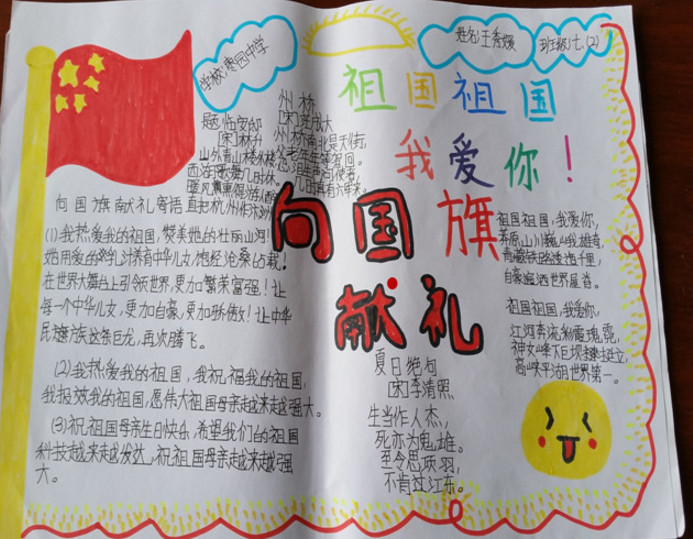 学校：枣园中学
姓名：王秀媛
班级：七.(2)
祖国祖国
我爱你！
题临安邸
[宋]林升
山外青山楼外楼,
西湖歌舞几时休。
暖风熏得游人醉,
直把杭州作汴州
州桥
[宋]范成大
州桥南北是天街,
父老年年等驾回。
忍泪失声询使者,
几时真有六军来。
向国旗
献礼
向国旗献礼寄语
(1)我热爱我的祖国,赞美她的壮丽山河!
她用爱的乳汁养育中华儿女,饱经沧桑
在世界大舞台上引领世界,更加繁荣富强!让
每一个中华儿女,更加自豪,更加骄傲!让中华
民族这条巨龙,再次腾飞。
(2)我热爱我的祖国,我祝福我的祖国,
我报效我的祖国,愿伟大祖国母亲越来越强大。
(3)祝祖国母亲生日快乐,希望我们的祖国
科技越来越发达,祝祖国母亲越来越强
大。
夏日绝句
[宋]李清照
生当作人杰,
死亦为鬼雄。
至今思项羽,
不肯过江东。
祖国祖国,我爱你,
山川巍峨雄奇,
青藏铁路连千里,
自豪洒世界屋脊。
祖国祖国,我爱你,
江河奔流彩霞瑰丽,
神女峰下巨坝矗立,
高峡平湖世界第一。